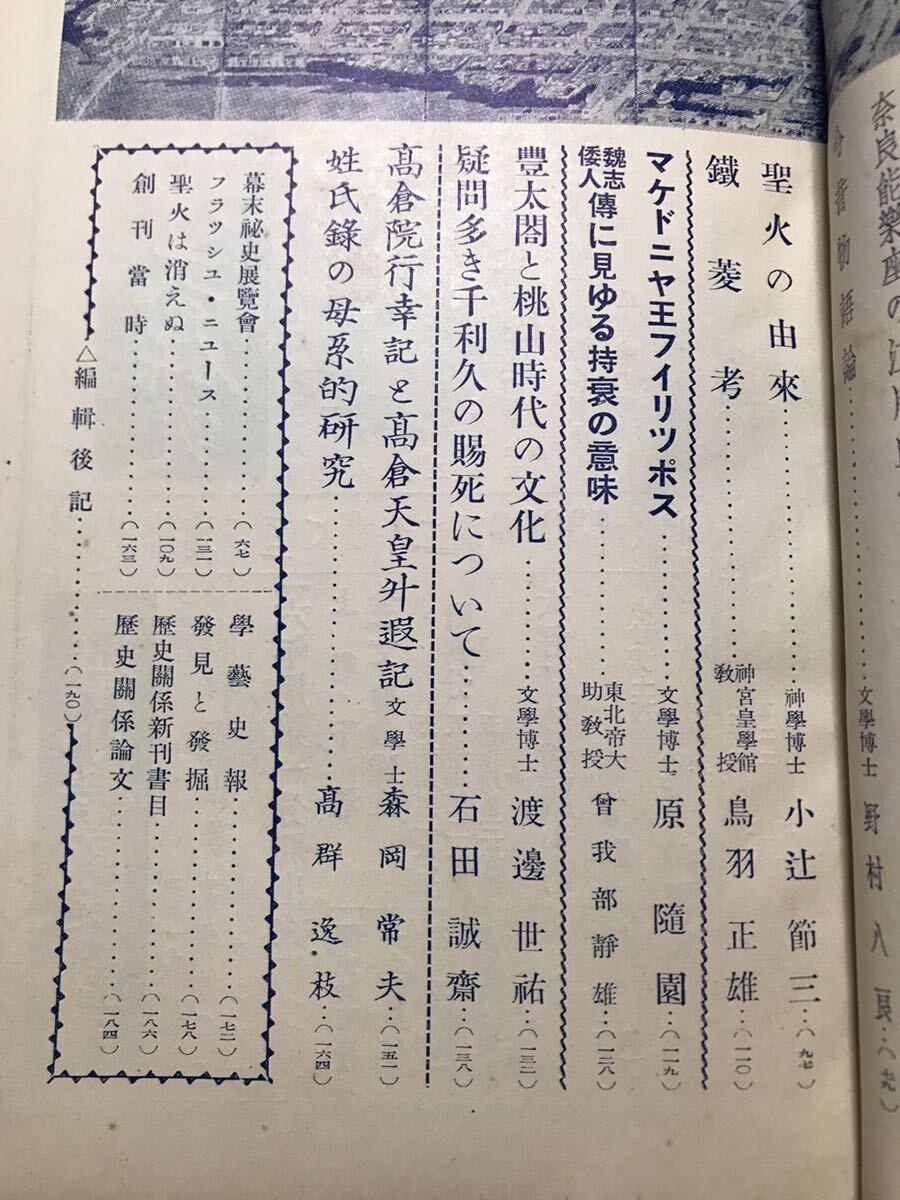 奈良能樂座の
今昔物語論………文學博士 野村八良…(八九)
聖火の由來………神學博士 小辻節三…(九七)
鐵菱考………神宮皇學館教授 鳥羽正雄…(一一〇)
マケドニヤ王フイリツポス………文學博士 原隨園…(一一九)
魏志倭人傳に見ゆる持衰の意味………東北帝大助教授 曾我部靜雄…(一二八)
豐太閤と桃山時代の文化………文學博士 渡邊世祐…(一三二)
疑問多き千利久の賜死について………石田誠齋…(一三八)
高倉院行幸記と高倉天皇升遐記 文學士 森岡常夫…(一五一)
姓氏錄の母系的研究………高群逸枝…(一六四)
幕末祕史展覽會………(六七)
フラツシユ・ニユース………(一三一)
聖火は消えぬ………(一〇九)
創刊當時………(一六三)
學藝史報………(一七二)
發見と發掘………(一七八)
歷史關係新刊書目………(一八六)
歷史關係論文………(一八四)
△編輯後記………(一九〇)